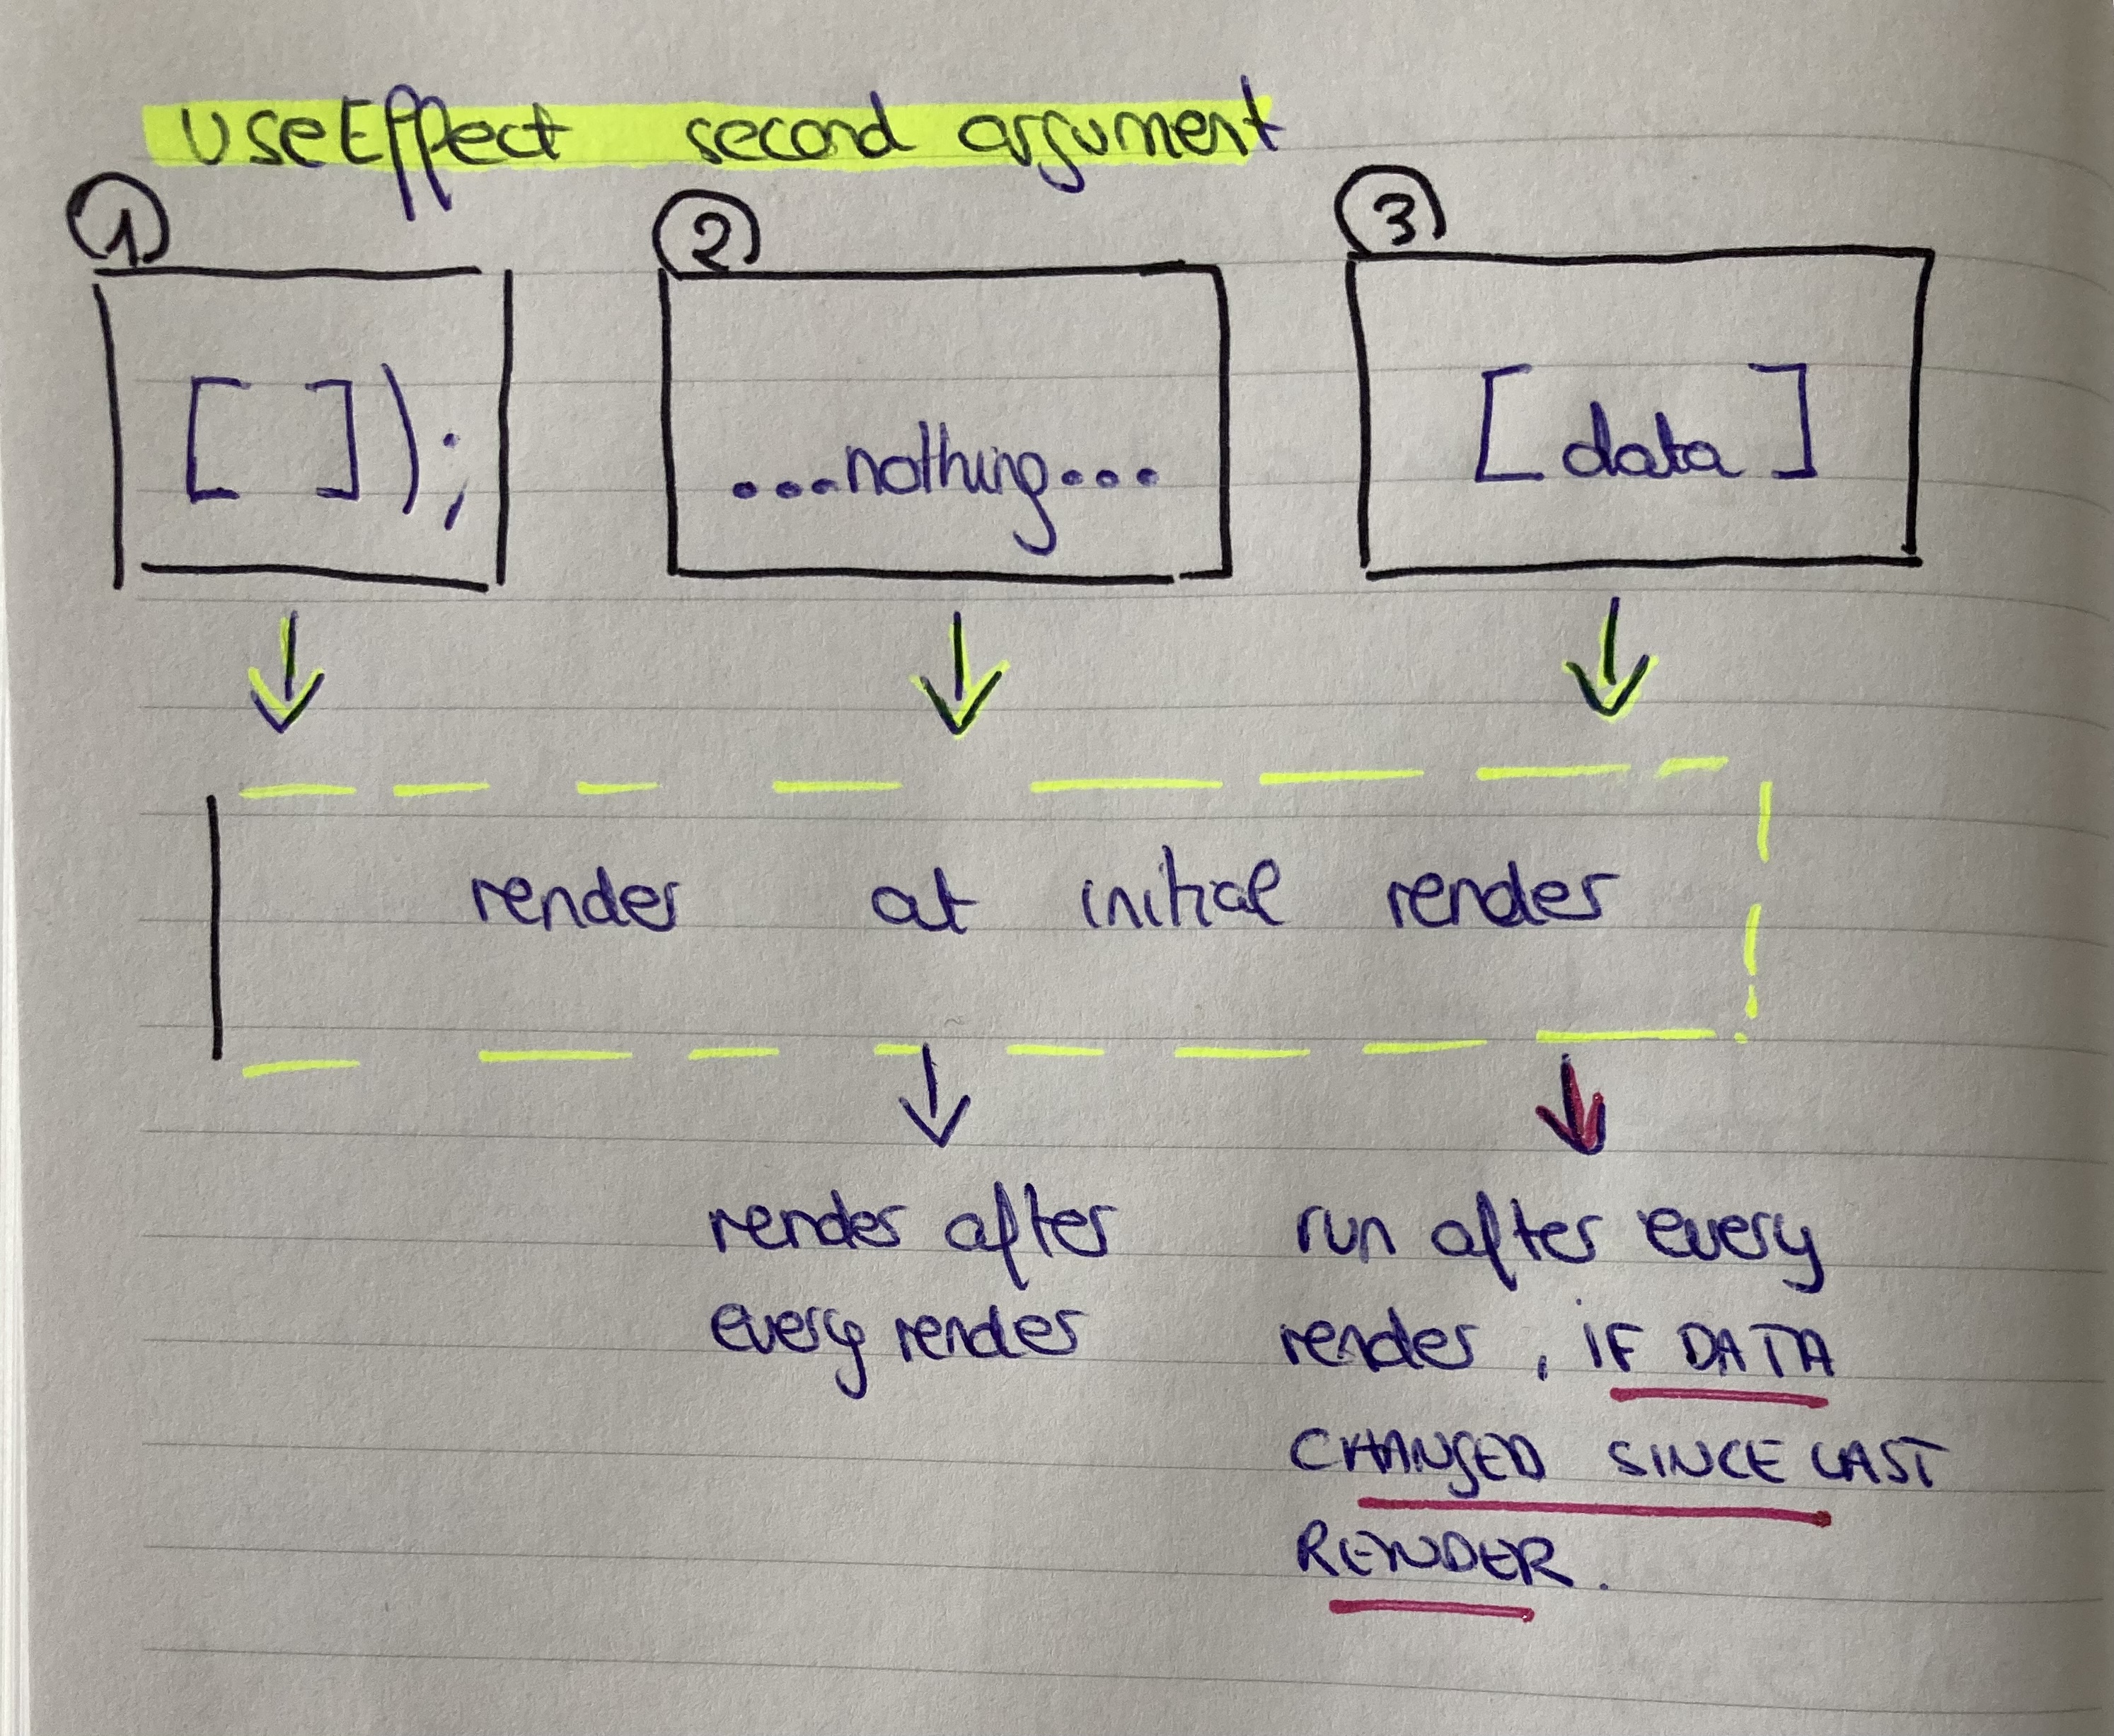 useEffect second argument
1
2
3
[ ]);
...nothing...
[data]
render at initial render
render after
every render
run after every
render, IF DATA
CHANGED SINCE LAST
RENDER.